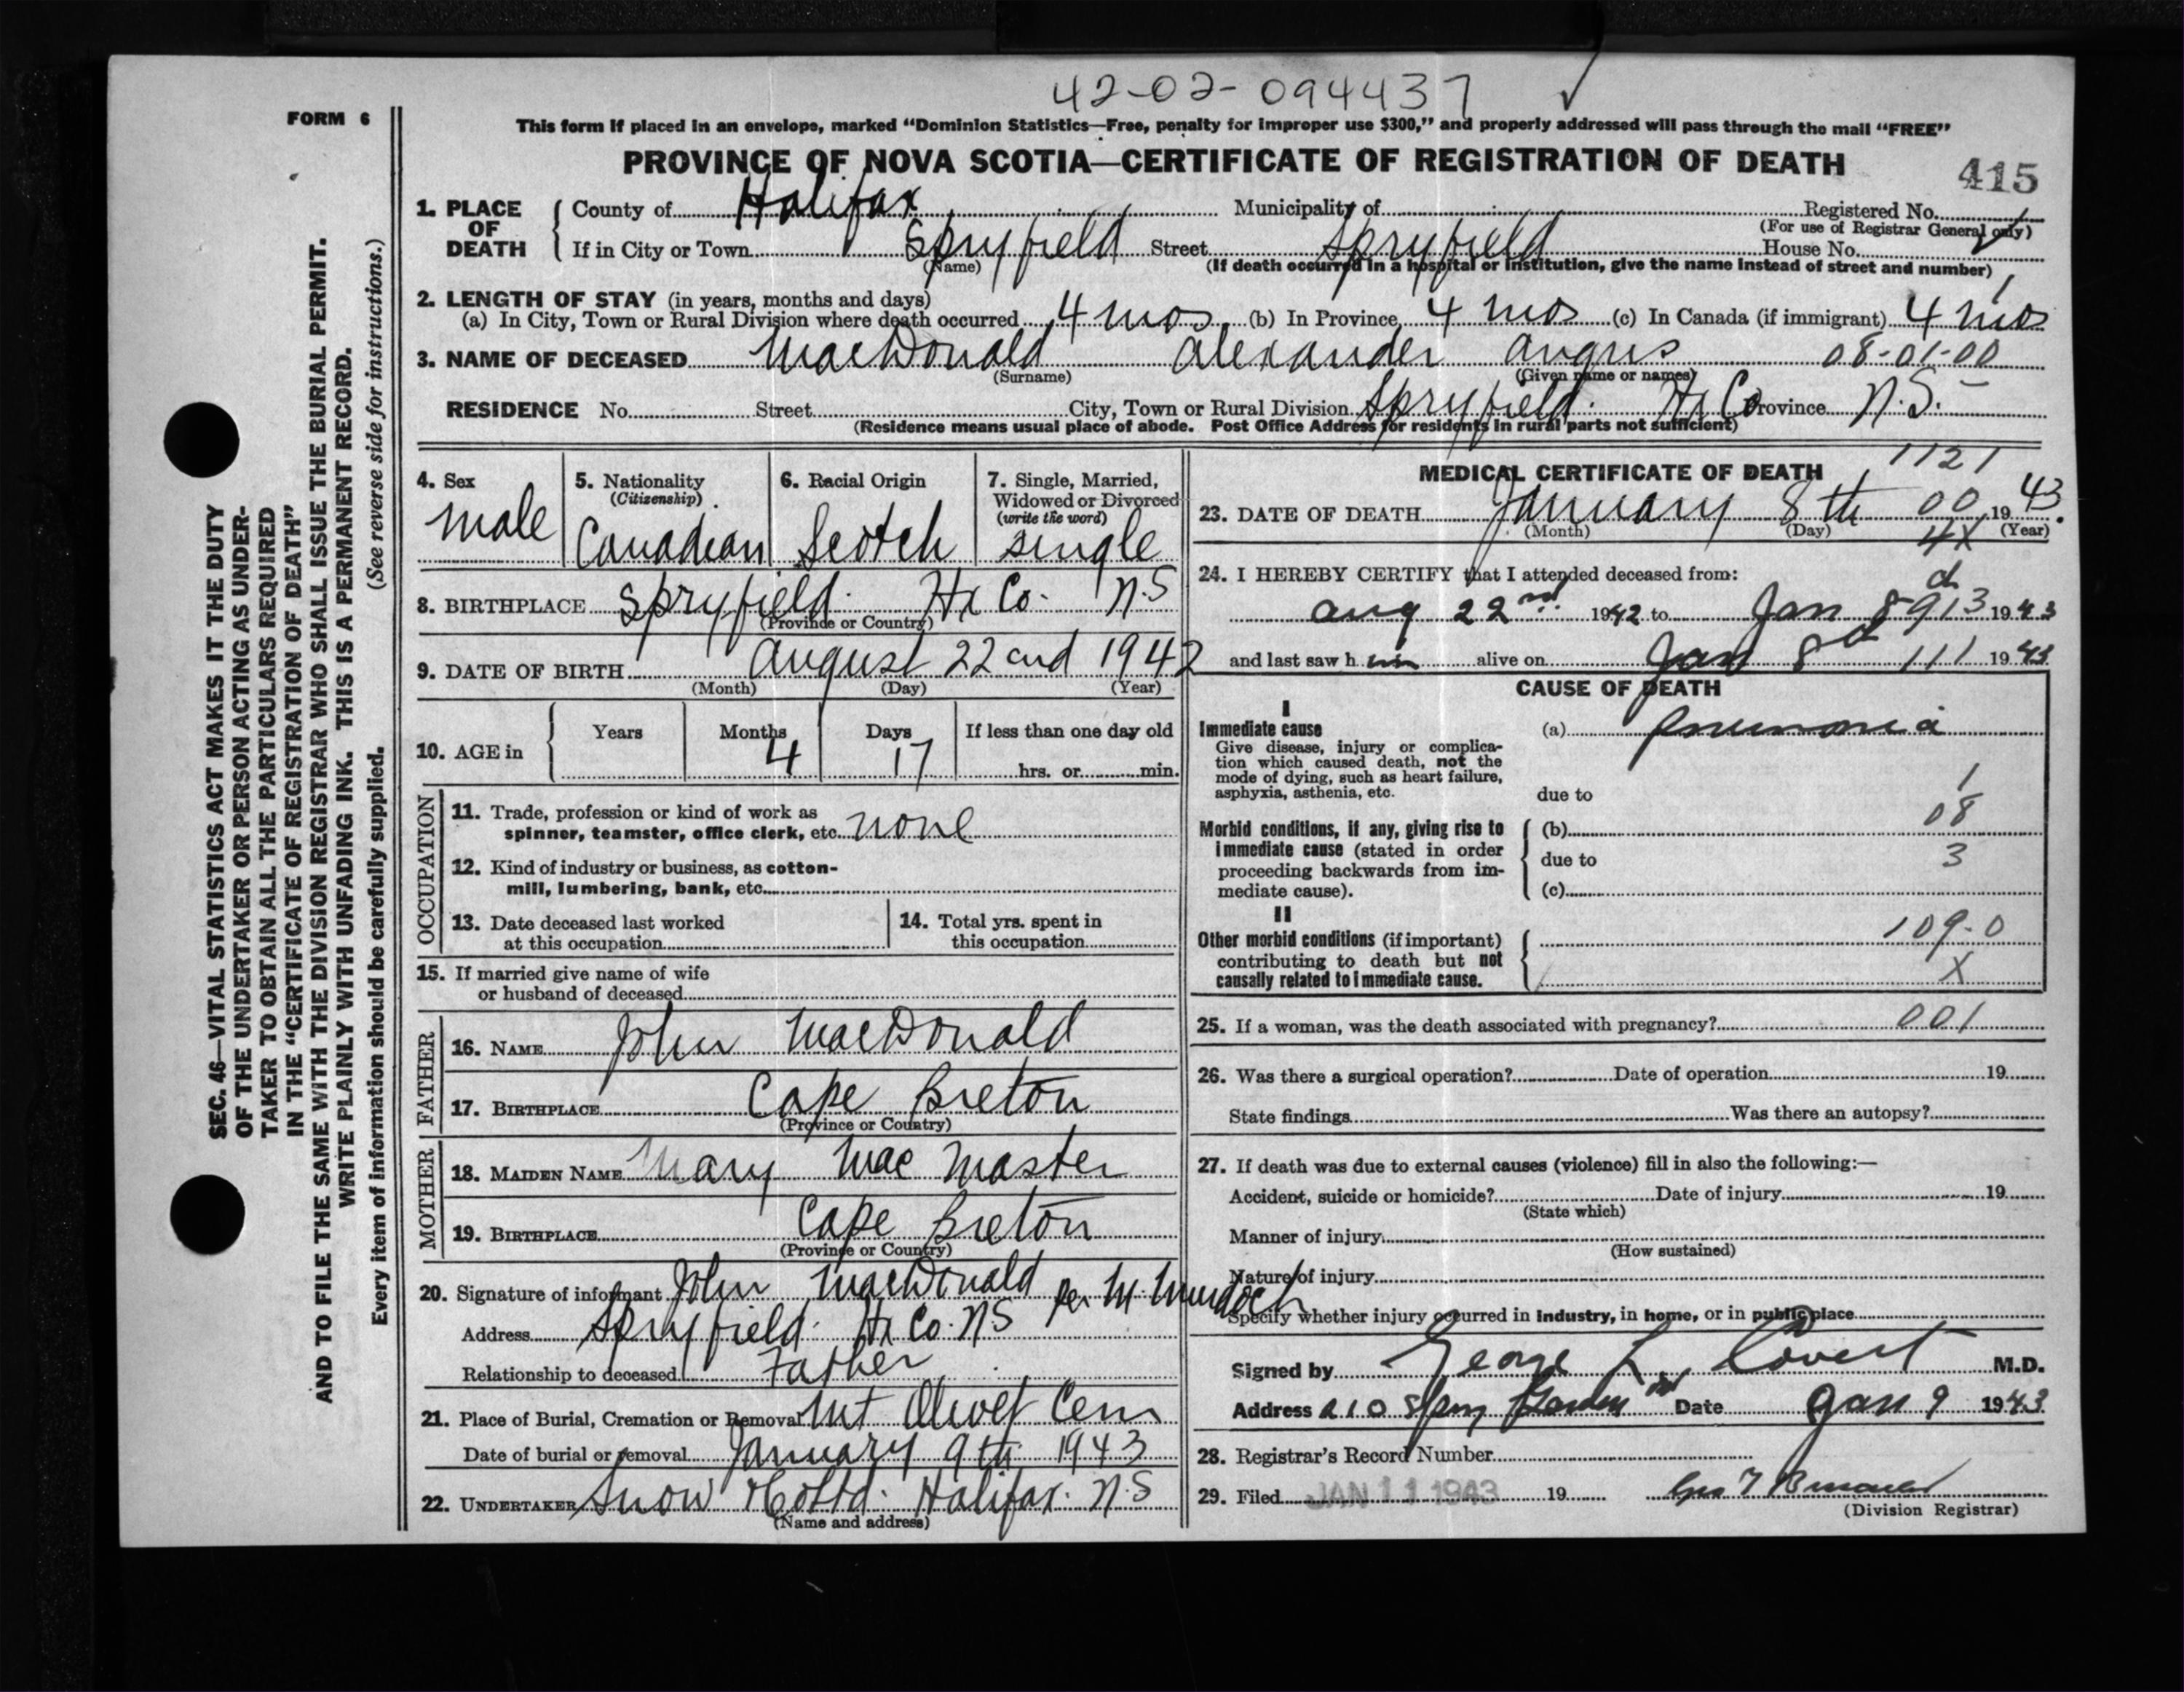 42-02-094437
FORM 6
This form if placed in an envelope, marked "Dominion Statistics—Free, penalty for improper use $300," and properly addressed will pass through the mail "FREE"
PROVINCE OF NOVA SCOTIA—CERTIFICATE OF REGISTRATION OF DEATH
415
1. PLACE OF DEATH County of Halifax Municipality of Registered No.
(For use of Registrar General only)
If in City or Town Spryfield Street Spryfield House No.
(Name) (If death occurred in a hospital or institution, give the name instead of street and number)
2. LENGTH OF STAY (in years, months and days)
(a) In City, Town or Rural Division where death occurred 4 mos (b) In Province 4 mos (c) In Canada (if immigrant) 4 mos
3. NAME OF DECEASED MacDonald Alexander Angus 08-01-00
(Surname) (Given name or names)
RESIDENCE No. Street City, Town or Rural Division Spryfield. Hx Co Province N.S.
(Residence means usual place of abode. Post Office Address for residents in rural parts not sufficient)
4. Sex
male
5. Nationality
(Citizenship)
Canadian
6. Racial Origin
Scotch
7. Single, Married,
Widowed or Divorced
(write the word)
single
8. BIRTHPLACE Spryfield. Hx Co. N.S
(Province or Country)
9. DATE OF BIRTH August 22nd 1942
(Month) (Day) (Year)
10. AGE in Years Months Days If less than one day old
4 17 hrs. or min.
OCCUPATION
11. Trade, profession or kind of work as
spinner, teamster, office clerk, etc. none
12. Kind of industry or business, as cotton-
mill, lumbering, bank, etc.
13. Date deceased last worked
at this occupation
14. Total yrs. spent in
this occupation
15. If married give name of wife
or husband of deceased
FATHER
16. NAME John MacDonald
17. BIRTHPLACE Cape Breton
(Province or Country)
MOTHER
18. MAIDEN NAME Mary MacMaster
19. BIRTHPLACE Cape Breton
(Province or Country)
20. Signature of informant John MacDonald per M. Murdoch
Address Spryfield. Hx Co. N.S
Relationship to deceased Father
21. Place of Burial, Cremation or Removal Mt Olivet Cem
Date of burial or removal January 9th 1943
22. UNDERTAKER Snow & Co Ltd. Halifax. N.S
(Name and address)
MEDICAL CERTIFICATE OF DEATH
1121
23. DATE OF DEATH January 8th 00 1943.
(Month) (Day) (Year)
4X
24. I HEREBY CERTIFY that I attended deceased from:
Aug 22nd 1942 to Jan 8 913 1943
and last saw him alive on Jan 8 111 1943
CAUSE OF DEATH
I
Immediate cause
Give disease, injury or complica-
tion which caused death, not the
mode of dying, such as heart failure,
asphyxia, asthenia, etc.
(a) pneumonia
due to 1
08
Morbid conditions, if any, giving rise to
immediate cause (stated in order
proceeding backwards from im-
mediate cause).
(b)
due to 3
(c)
II
Other morbid conditions (if important)
contributing to death but not
causally related to immediate cause.
109-0
X
25. If a woman, was the death associated with pregnancy? 001
26. Was there a surgical operation? Date of operation 19
State findings Was there an autopsy?
27. If death was due to external causes (violence) fill in also the following:—
Accident, suicide or homicide? Date of injury 19
(State which)
Manner of injury
(How sustained)
Nature of injury
Specify whether injury occurred in industry, in home, or in public place
Signed by George L. Covert M.D.
Address 210 Spring Garden Rd Date Jan 9 1943
28. Registrar's Record Number
29. Filed JAN 11 1943 19
(Division Registrar)
SEC. 46—VITAL STATISTICS ACT MAKES IT THE DUTY
OF THE UNDERTAKER OR PERSON ACTING AS UNDER-
TAKER TO OBTAIN ALL THE PARTICULARS REQUIRED
IN THE "CERTIFICATE OF REGISTRATION OF DEATH"
AND TO FILE THE SAME WITH THE DIVISION REGISTRAR WHO SHALL ISSUE THE BURIAL PERMIT.
WRITE PLAINLY WITH UNFADING INK. THIS IS A PERMANENT RECORD.
Every item of information should be carefully supplied. (See reverse side for instructions.)